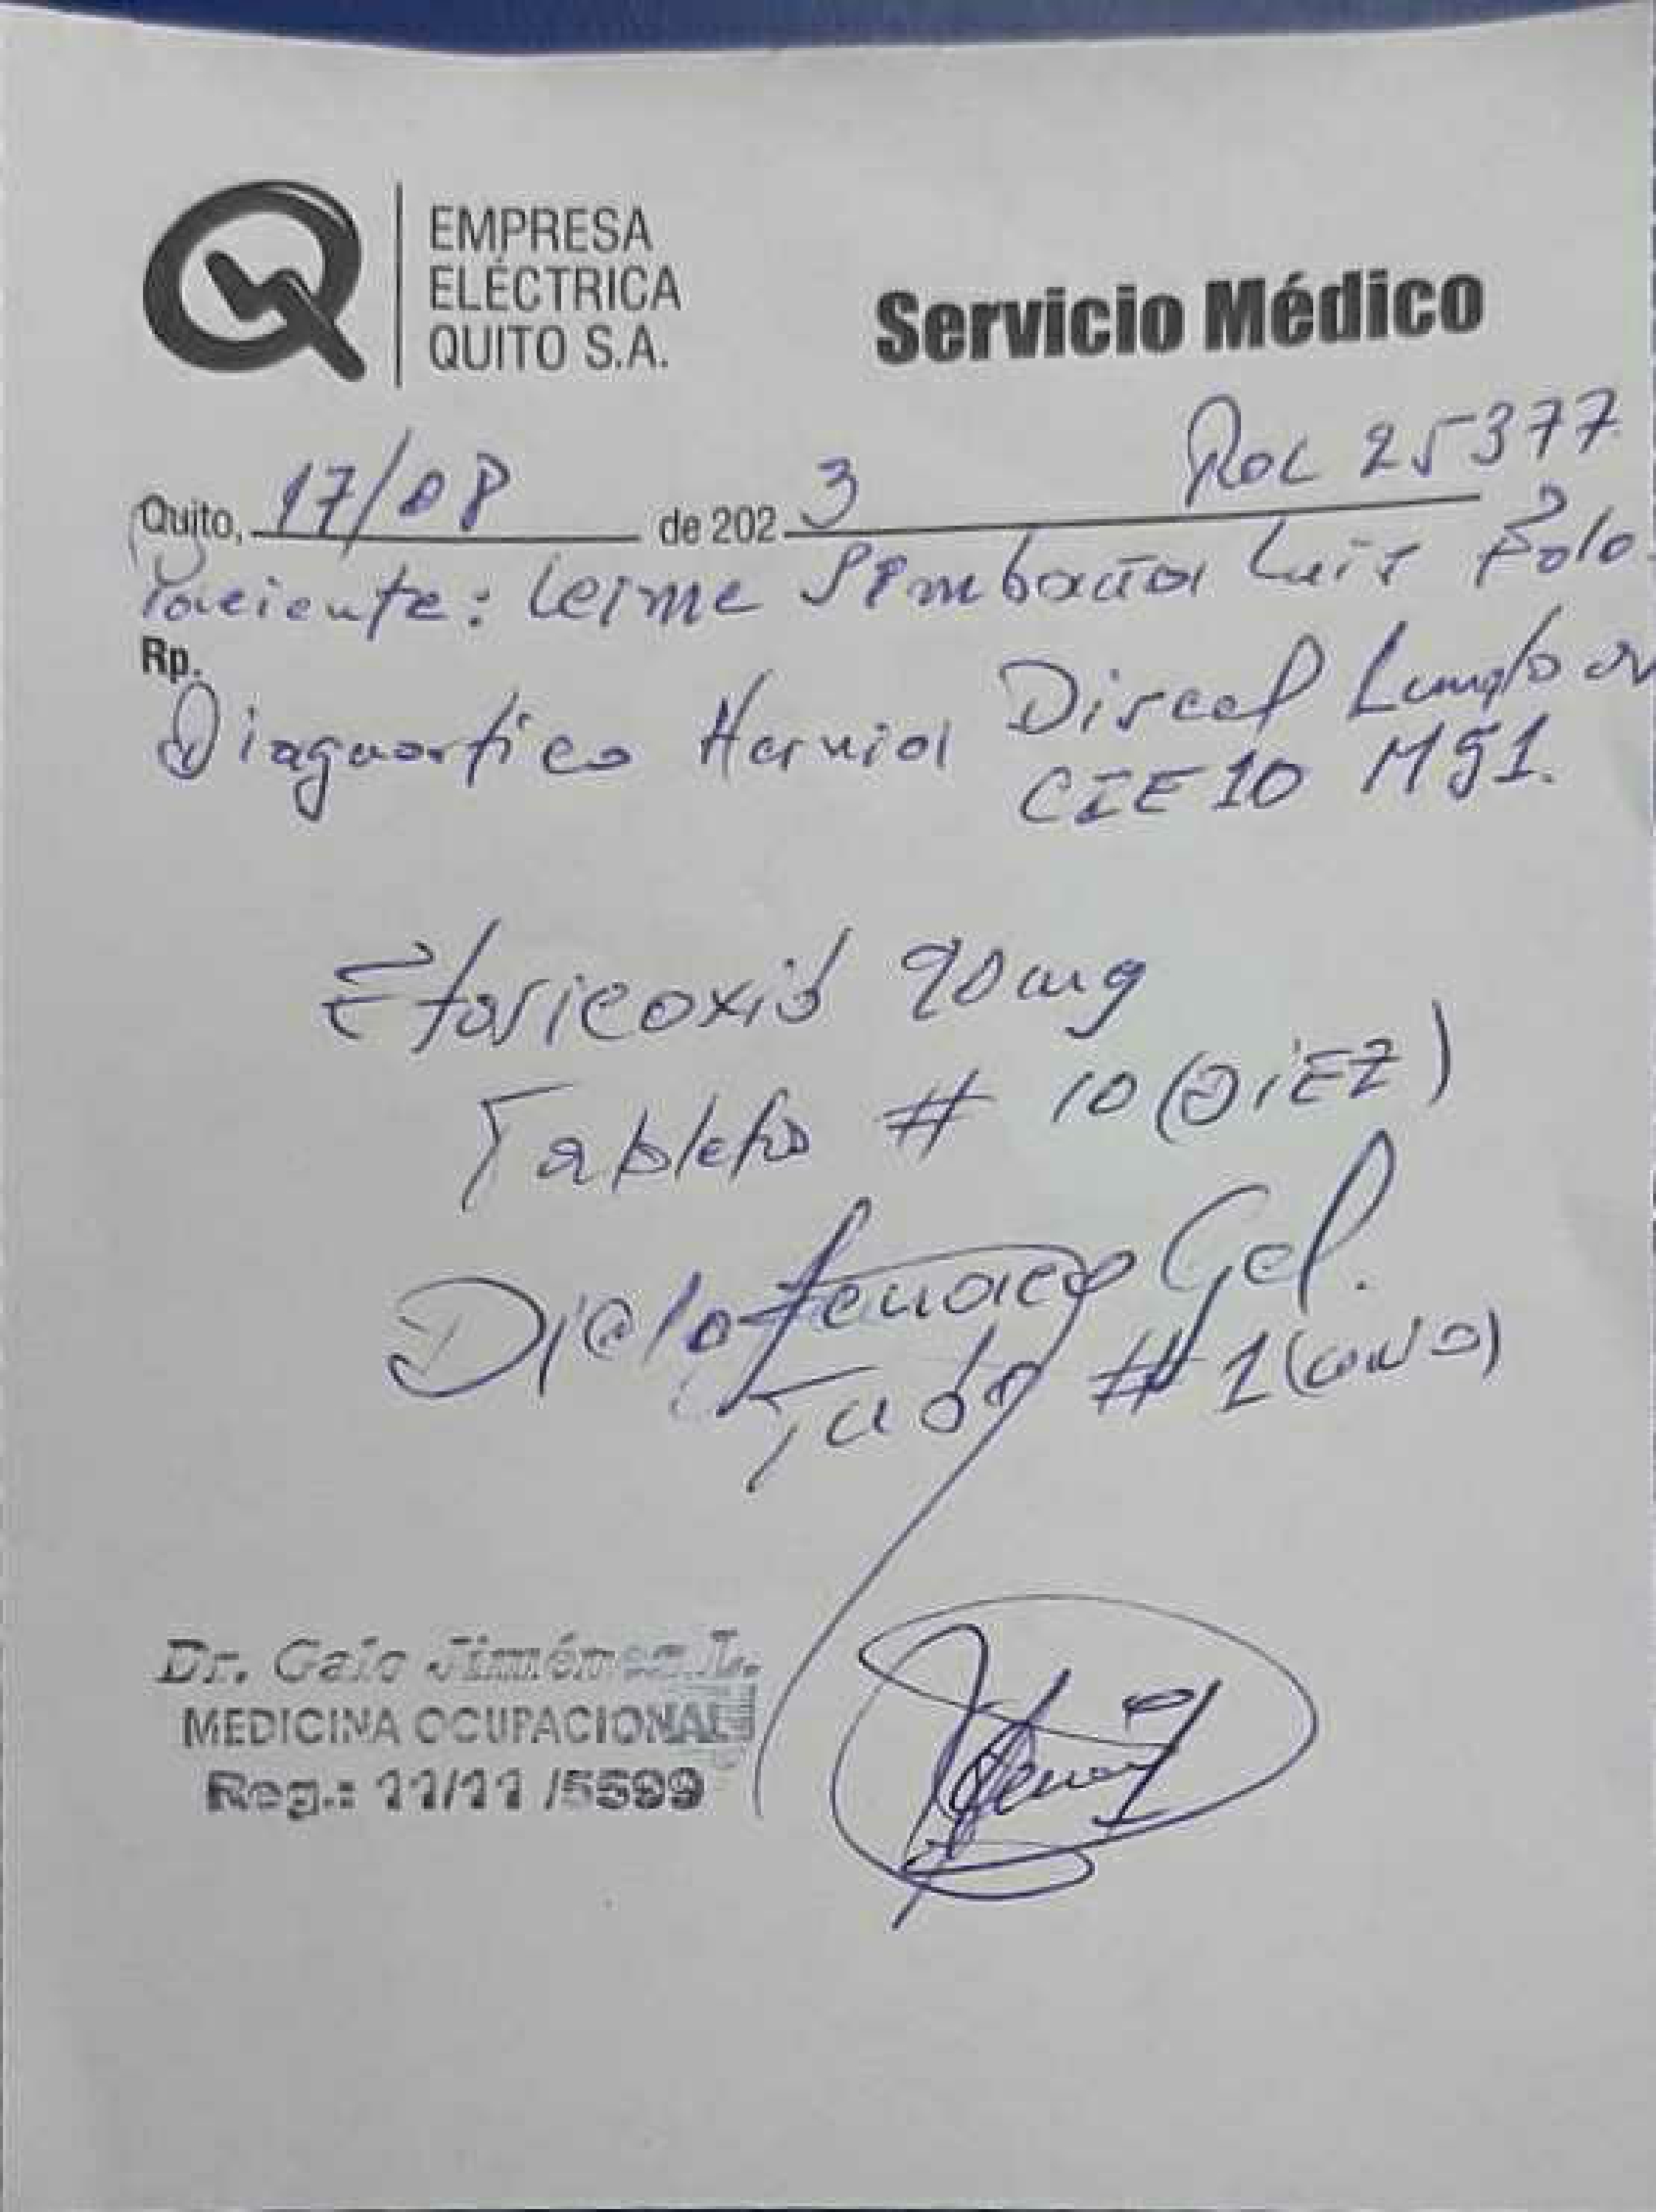 EMPRESA
ELÉCTRICA
QUITO S.A.
Servicio Médico
Rol 25377
Quito, 17/08 de 2023
Paciente: Leime Simbaña Luis Polo
Rp.
Diagnostico Hernia Discal Lumbar
CIE 10 M51.
Etoricoxib 90mg
Tabletas # 10 (DIEZ)
Diclofenaco Gel.
Tubo # 1 (uno)
Dr. Galo Jiménez L.
MEDICINA OCUPACIONAL
Reg.: 11/11 /5599